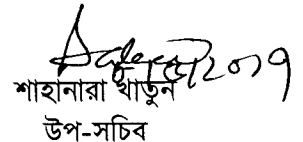 শাহানারা খাতুন
উপ-সচিব